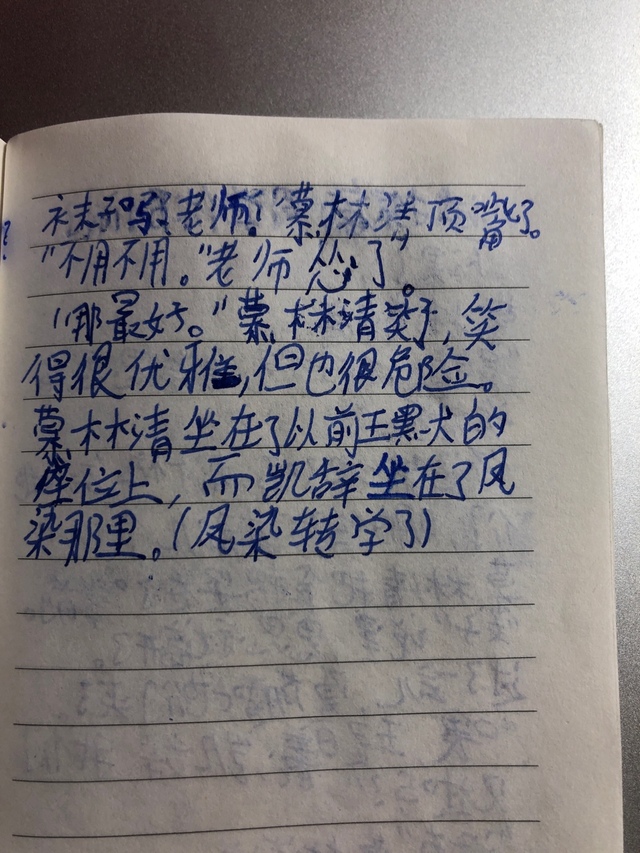 袜子吗？老师！"慕林清顶嘴了。
"不用不用。"老师怂了。
"那最好。"慕林清笑了，笑
得很优雅，但也很危险。
慕林清坐在了以前王黑犬的
座位上，而凯辞坐在了凤
染那里。(凤染转学了)